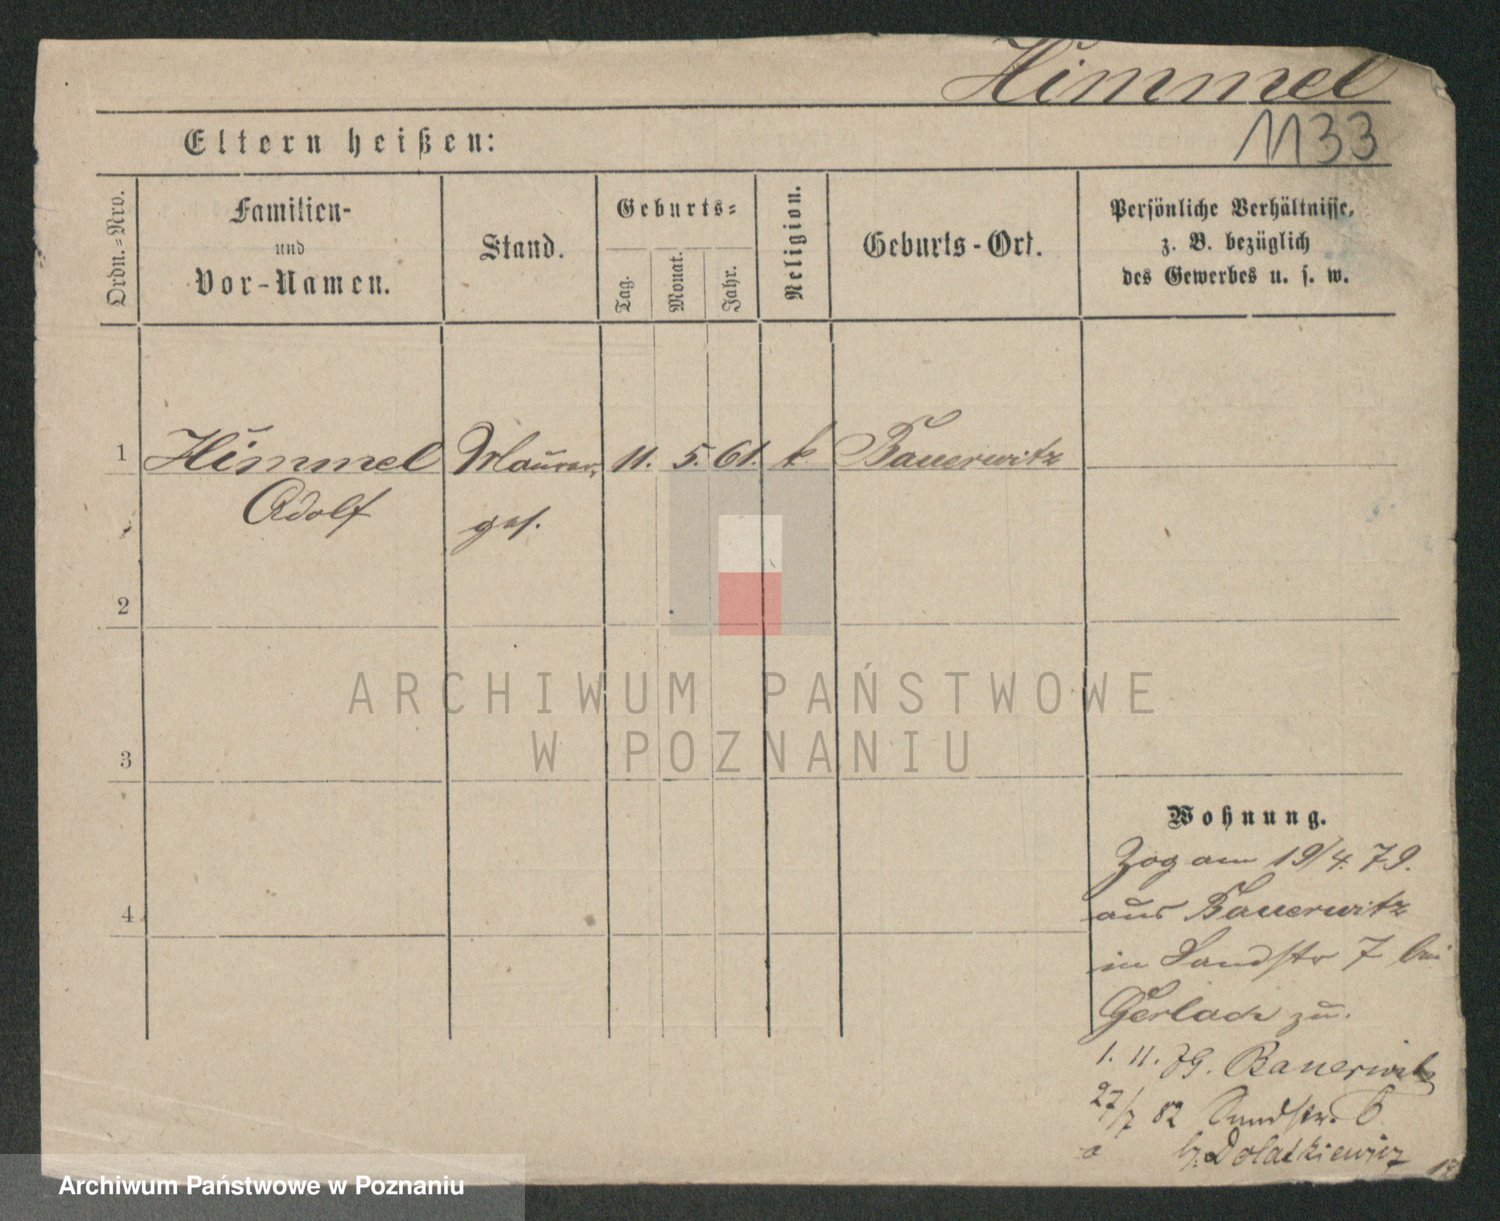 Himmel
1133
Eltern heißen:
Ordn.=Nro.
Familien-
und
Vor-Namen.
Stand.
Geburts=
Tag.
Monat.
Jahr.
Religion.
Geburts-Ort.
Persönliche Verhältnisse,
z. B. bezüglich
des Gewerbes u. s. w.
1 Himmel Maurer, 11. 5. 61. k. Bauerwitz
Adolf ges.
2
3
4
ARCHIWUM PAŃSTWOWE
W POZNANIU
Wohnung.
Zog am 19/4. 79.
aus Bauerwitz
in Sandstr 7 bei
Gerlach zu.
1. 11. 79. Bauerwitz
27/7 82 Sandstr. 6
Dolatkiewicz
Archiwum Państwowe w Poznaniu